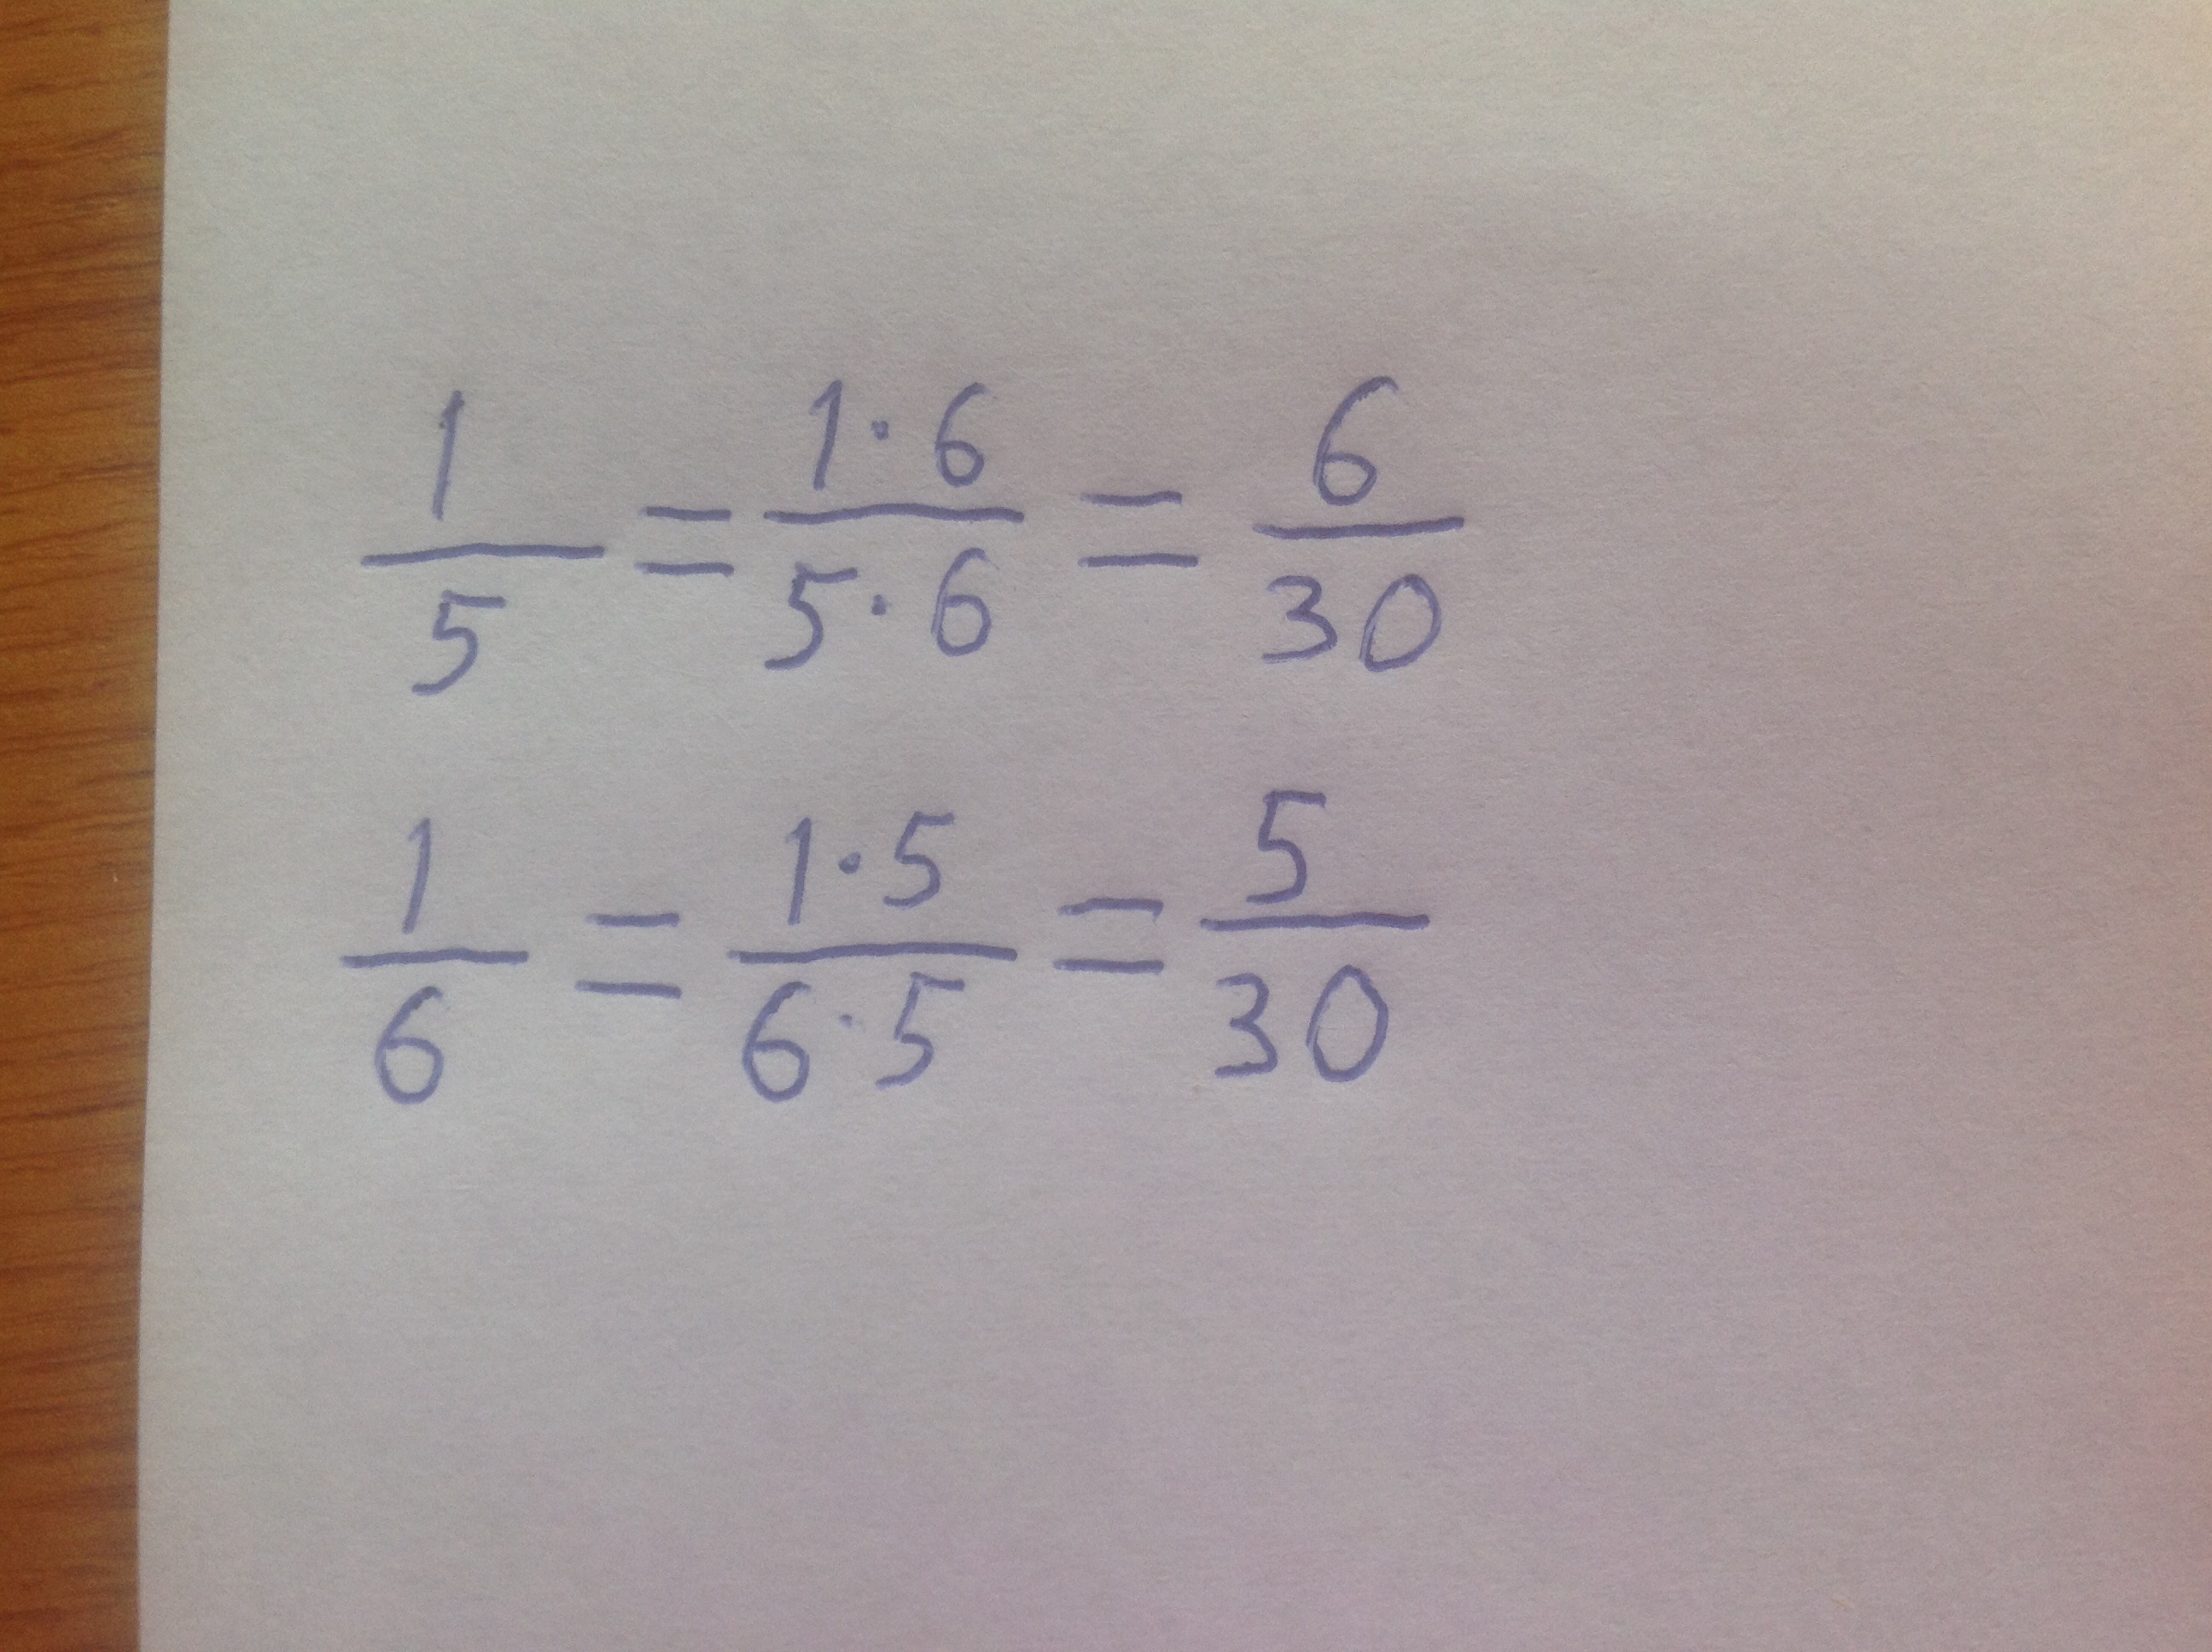 1/5 = 1·6/5·6 = 6/30
1/6 = 1·5/6·5 = 5/30